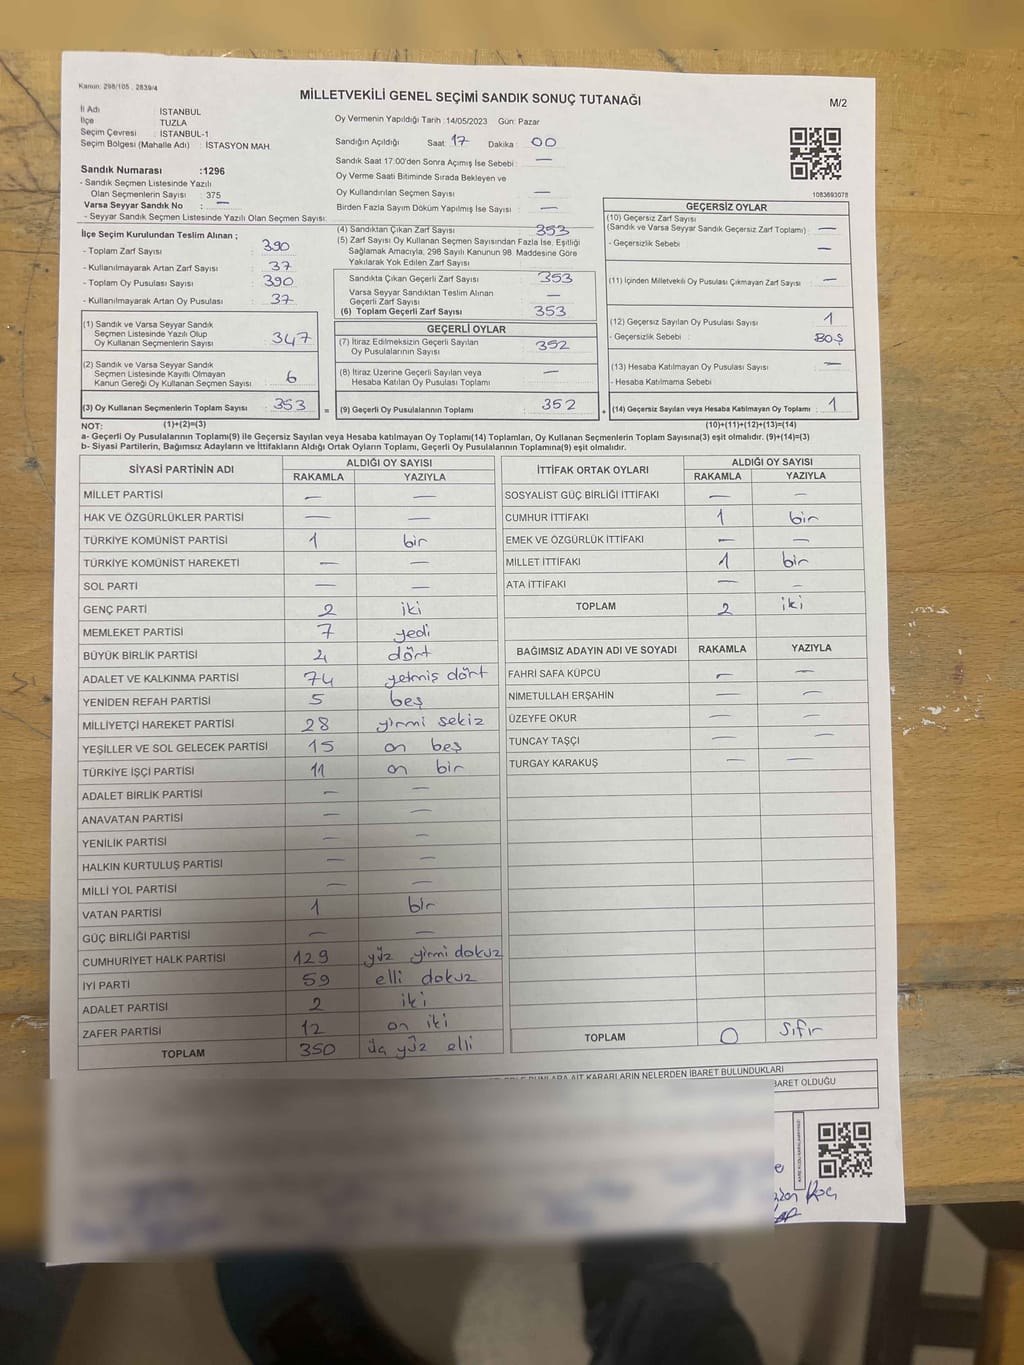 Kanun: 298/105 , 2839/4
MİLLETVEKİLİ GENEL SEÇİMİ SANDIK SONUÇ TUTANAĞI
M/2
İl Adı İSTANBUL
İlçe TUZLA
Seçim Çevresi : İSTANBUL-1
Seçim Bölgesi (Mahalle Adı) : İSTASYON MAH.
Oy Vermenin Yapıldığı Tarih :14/05/2023 Gün: Pazar
Sandığın Açıldığı Saat: 17 Dakika : 00
Sandık Saat 17:00'den Sonra Açımış İse Sebebi : —
Oy Verme Saati Bitiminde Sırada Bekleyen ve
Oy Kullandırılan Seçmen Sayısı —
Birden Fazla Sayım Döküm Yapılmış İse Sayısı —
Sandık Numarası :1296
- Sandık Seçmen Listesinde Yazılı
Olan Seçmenlerin Sayısı : 375
Varsa Seyyar Sandık No : —
- Seyyar Sandık Seçmen Listesinde Yazılı Olan Seçmen Sayısı:
1083693078
İlçe Seçim Kurulundan Teslim Alınan ;
- Toplam Zarf Sayısı : 390
- Kullanılmayarak Artan Zarf Sayısı : 37
- Toplam Oy Pusulası Sayısı : 390
- Kullanılmayarak Artan Oy Pusulası : 37
(1) Sandık ve Varsa Seyyar Sandık
Seçmen Listesinde Yazılı Olup
Oy Kullanan Seçmenlerin Sayısı : 347
(2) Sandık ve Varsa Seyyar Sandık
Seçmen Listesinde Kayıtlı Olmayan
Kanun Gereği Oy Kullanan Seçmen Sayısı : 6
(3) Oy Kullanan Seçmenlerin Toplam Sayısı : 353 =
(4) Sandıktan Çıkan Zarf Sayısı : 353
(5) Zarf Sayısı Oy Kullanan Seçmen Sayısından Fazla İse, Eşitliği
Sağlamak Amacıyla; 298 Sayılı Kanunun 98. Maddesine Göre
Yakılarak Yok Edilen Zarf Sayısı :
Sandıkta Çıkan Geçerli Zarf Sayısı : 353
Varsa Seyyar Sandıktan Teslim Alınan
Geçerli Zarf Sayısı : —
(6) Toplam Geçerli Zarf Sayısı : 353
GEÇERLİ OYLAR
(7) İtiraz Edilmeksizin Geçerli Sayılan
Oy Pusulalarının Sayısı : 352
(8) İtiraz Üzerine Geçerli Sayılan veya
Hesaba Katılan Oy Pusulası Toplamı : —
(9) Geçerli Oy Pusulalarının Toplamı : 352 +
GEÇERSİZ OYLAR
(10) Geçersiz Zarf Sayısı
(Sandık ve Varsa Seyyar Sandık Geçersiz Zarf Toplamı) : —
- Geçersizlik Sebebi : —
(11) İçinden Milletvekili Oy Pusulası Çıkmayan Zarf Sayısı : —
(12) Geçersiz Sayılan Oy Pusulası Sayısı : 1
- Geçersizlik Sebebi : BOŞ
(13) Hesaba Katılmayan Oy Pusulası Sayısı : —
- Hesaba Katılmama Sebebi :
(14) Geçersiz Sayılan veya Hesaba Katılmayan Oy Toplamı : 1
NOT: (1)+(2)=(3) (10)+(11)+(12)+(13)=(14)
a- Geçerli Oy Pusulalarının Toplamı(9) ile Geçersiz Sayılan veya Hesaba katılmayan Oy Toplamı(14) Toplamları, Oy Kullanan Seçmenlerin Toplam Sayısına(3) eşit olmalıdır. (9)+(14)=(3)
b- Siyasi Partilerin, Bağımsız Adayların ve İttifakların Aldığı Oyların Toplamı, Geçerli Oy Pusulalarının Toplamına(9) eşit olmalıdır.
SİYASİ PARTİNİN ADI ALDIĞI OY SAYISI
RAKAMLA YAZIYLA
MİLLET PARTİSİ — —
HAK VE ÖZGÜRLÜKLER PARTİSİ — —
TÜRKİYE KOMÜNİST PARTİSİ 1 bir
TÜRKİYE KOMÜNİST HAREKETİ — —
SOL PARTİ — —
GENÇ PARTİ 2 iki
MEMLEKET PARTİSİ 7 yedi
BÜYÜK BİRLİK PARTİSİ 4 dört
ADALET VE KALKINMA PARTİSİ 74 yetmiş dört
YENİDEN REFAH PARTİSİ 5 beş
MİLLİYETÇİ HAREKET PARTİSİ 28 yirmi sekiz
YEŞİLLER VE SOL GELECEK PARTİSİ 15 on beş
TÜRKİYE İŞÇİ PARTİSİ 11 on bir
ADALET BİRLİK PARTİSİ — —
ANAVATAN PARTİSİ — —
YENİLİK PARTİSİ — —
HALKIN KURTULUŞ PARTİSİ — —
MİLLİ YOL PARTİSİ — —
VATAN PARTİSİ 1 bir
GÜÇ BİRLİĞİ PARTİSİ — —
CUMHURİYET HALK PARTİSİ 129 yüz yirmi dokuz
İYİ PARTİ 59 elli dokuz
ADALET PARTİSİ 2 iki
ZAFER PARTİSİ 12 on iki
TOPLAM 350 üç yüz elli
İTTİFAK ORTAK OYLARI ALDIĞI OY SAYISI
RAKAMLA YAZIYLA
SOSYALİST GÜÇ BİRLİĞİ İTTİFAKI — —
CUMHUR İTTİFAKI 1 bir
EMEK VE ÖZGÜRLÜK İTTİFAKI — —
MİLLET İTTİFAKI 1 bir
ATA İTTİFAKI — —
TOPLAM 2 iki
BAĞIMSIZ ADAYIN ADI VE SOYADI RAKAMLA YAZIYLA
FAHRİ SAFA KÜPCÜ — —
NİMETULLAH ERŞAHİN — —
ÜZEYFE OKUR — —
TUNCAY TAŞÇI — —
TURGAY KARAKUŞ — —
TOPLAM 0 sıfır
AİT KARARLARIN NELERDEN İBARET BULUNDUKLARI
BARET OLDUĞU